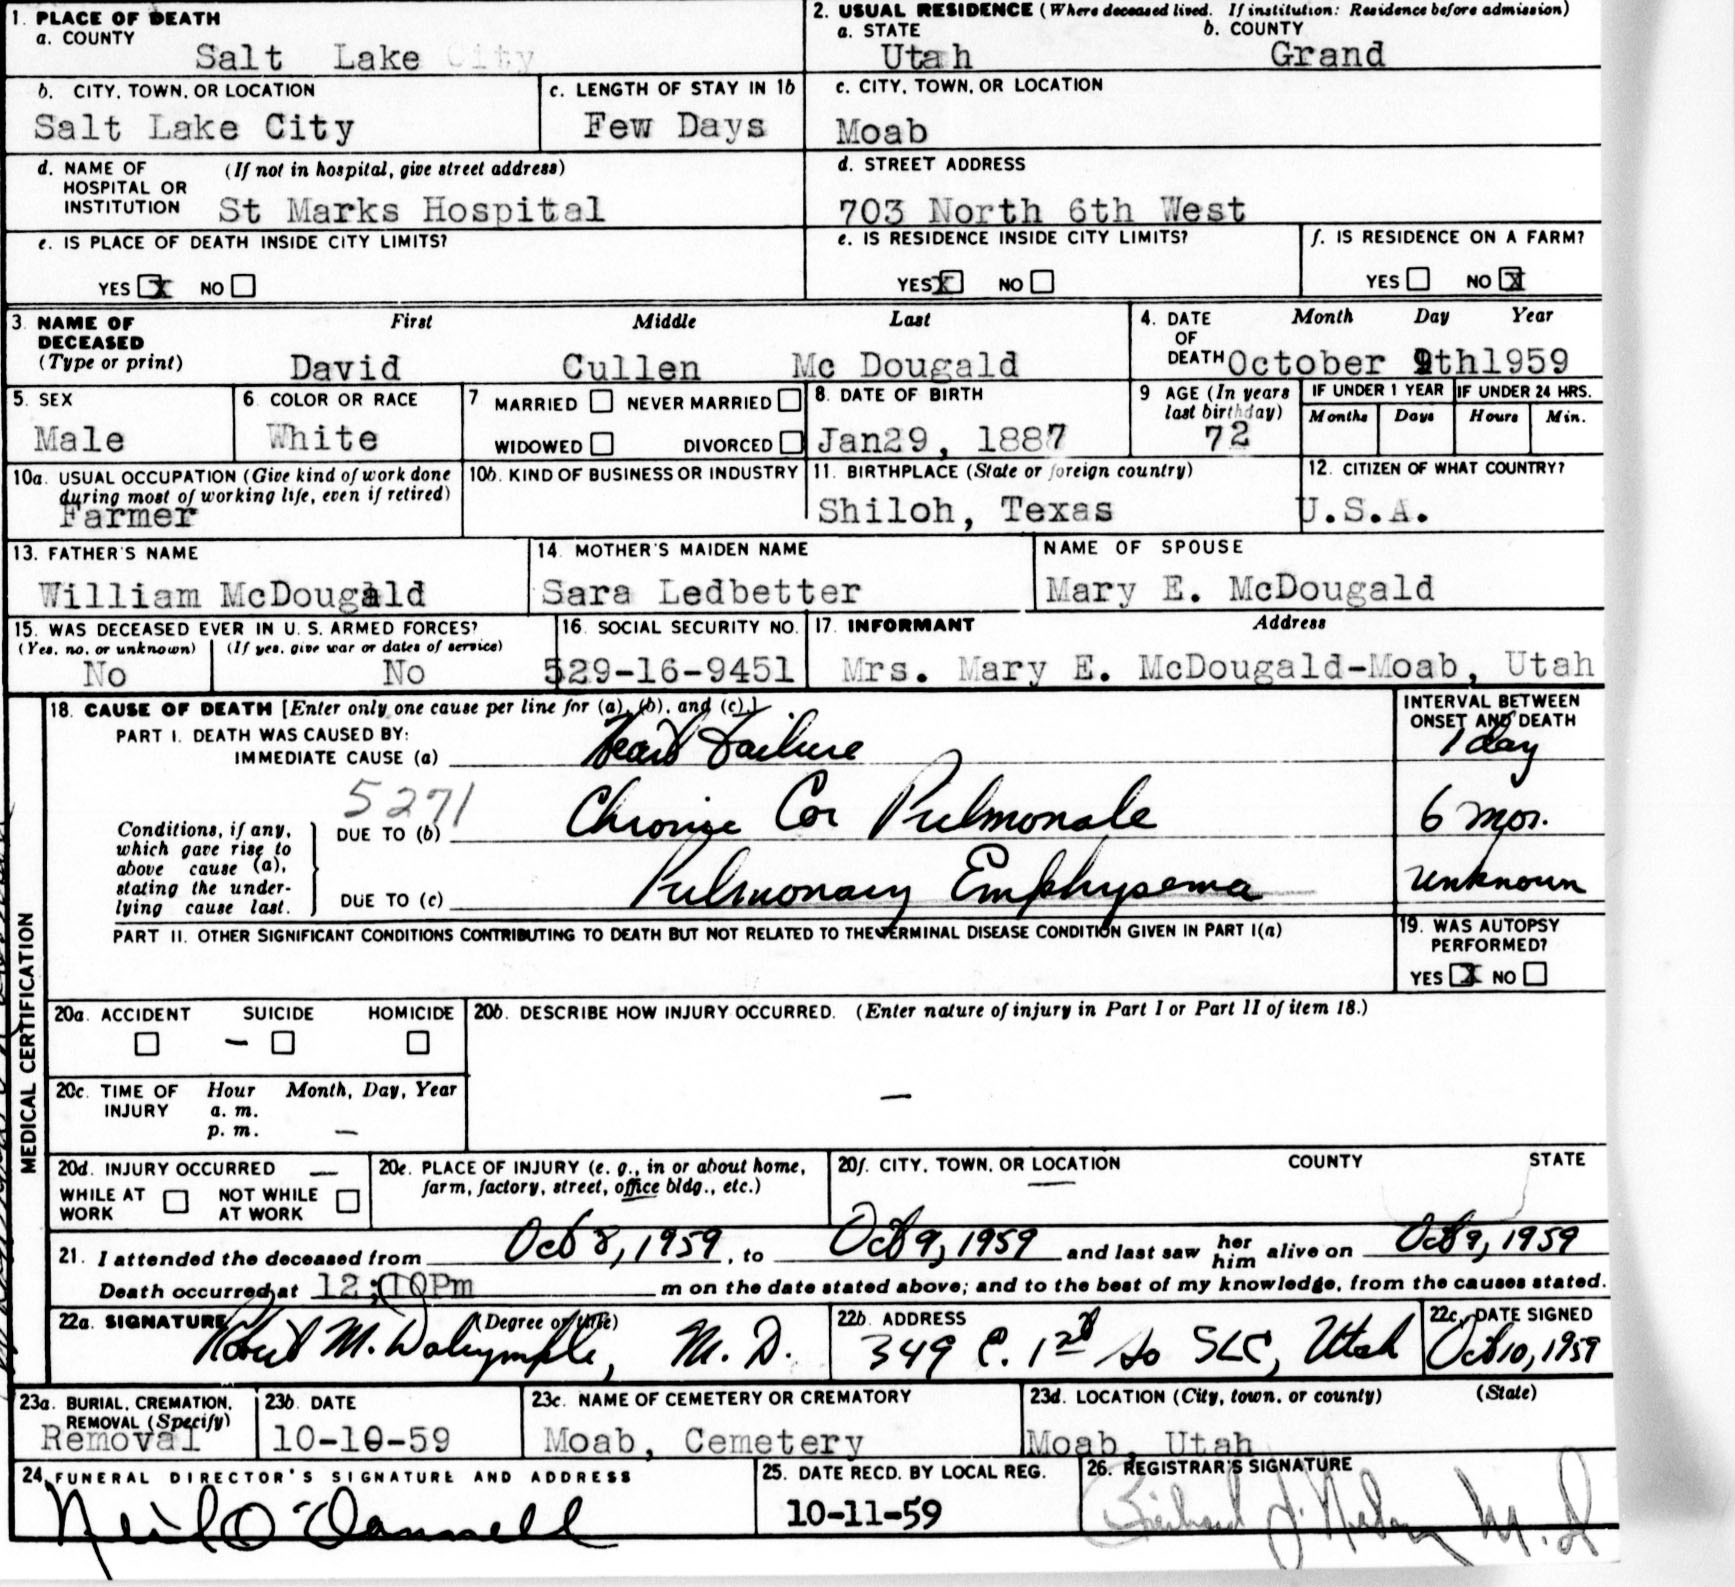 1. PLACE OF DEATH
a. COUNTY
Salt Lake City
2. USUAL RESIDENCE (Where deceased lived. If institution: Residence before admission)
a. STATE
Utah
b. COUNTY
Grand
b. CITY, TOWN, OR LOCATION
Salt Lake City
c. LENGTH OF STAY IN 1b
Few Days
c. CITY, TOWN, OR LOCATION
Moab
d. NAME OF HOSPITAL OR INSTITUTION (If not in hospital, give street address)
St Marks Hospital
d. STREET ADDRESS
703 North 6th West
e. IS PLACE OF DEATH INSIDE CITY LIMITS?
YES X NO
e. IS RESIDENCE INSIDE CITY LIMITS?
YES X NO
f. IS RESIDENCE ON A FARM?
YES NO X
3. NAME OF DECEASED (Type or print)
First Middle Last
David Cullen Mc Dougald
4. DATE OF DEATH
Month Day Year
October 9th1959
5. SEX
Male
6. COLOR OR RACE
White
7 MARRIED NEVER MARRIED
WIDOWED DIVORCED
8. DATE OF BIRTH
Jan29, 1887
9 AGE (In years last birthday)
72
IF UNDER 1 YEAR
Months Days
IF UNDER 24 HRS.
Hours Min.
10a. USUAL OCCUPATION (Give kind of work done during most of working life, even if retired)
Farmer
10b. KIND OF BUSINESS OR INDUSTRY
11. BIRTHPLACE (State or foreign country)
Shiloh, Texas
12. CITIZEN OF WHAT COUNTRY?
U.S.A.
13. FATHER'S NAME
William McDougald
14. MOTHER'S MAIDEN NAME
Sara Ledbetter
NAME OF SPOUSE
Mary E. McDougald
15. WAS DECEASED EVER IN U. S. ARMED FORCES?
(Yes, no, or unknown) (If yes, give war or dates of service)
No No
16. SOCIAL SECURITY NO.
529-16-9451
17. INFORMANT Address
Mrs. Mary E. McDougald-Moab, Utah
MEDICAL CERTIFICATION
18. CAUSE OF DEATH [Enter only one cause per line for (a), (b), and (c).]
PART I. DEATH WAS CAUSED BY:
IMMEDIATE CAUSE (a) Heart Failure
INTERVAL BETWEEN ONSET AND DEATH
1 day
5271
Conditions, if any, which gave rise to above cause (a), stating the underlying cause last.
DUE TO (b) Chronic Cor Pulmonale
6 mos.
DUE TO (c) Pulmonary Emphysema
unknown
PART II. OTHER SIGNIFICANT CONDITIONS CONTRIBUTING TO DEATH BUT NOT RELATED TO THE TERMINAL DISEASE CONDITION GIVEN IN PART I(a)
19. WAS AUTOPSY PERFORMED?
YES X NO
20a. ACCIDENT SUICIDE HOMICIDE
–
20b. DESCRIBE HOW INJURY OCCURRED. (Enter nature of injury in Part I or Part II of item 18.)
–
20c. TIME OF INJURY
Hour Month, Day, Year
a. m.
p. m. –
20d. INJURY OCCURRED –
WHILE AT WORK NOT WHILE AT WORK
20e. PLACE OF INJURY (e. g., in or about home, farm, factory, street, office bldg., etc.)
20f. CITY, TOWN, OR LOCATION COUNTY STATE
21. I attended the deceased from Oct 8, 1959, to Oct 9, 1959 and last saw her him alive on Oct 9, 1959
Death occurred at 12;10Pm m on the date stated above; and to the best of my knowledge, from the causes stated.
22a. SIGNATURE (Degree or title)
Robert M. Dalrymple, M. D.
22b. ADDRESS
349 E. 1st So SLC, Utah
22c. DATE SIGNED
Oct 10, 1959
23a. BURIAL, CREMATION, REMOVAL (Specify)
Removal
23b. DATE
10-10-59
23c. NAME OF CEMETERY OR CREMATORY
Moab, Cemetery
23d. LOCATION (City, town, or county) (State)
Moab, Utah
24. FUNERAL DIRECTOR'S SIGNATURE AND ADDRESS
Neil O'Donnell
25. DATE RECD. BY LOCAL REG.
10-11-59
26. REGISTRAR'S SIGNATURE
Richard M. D